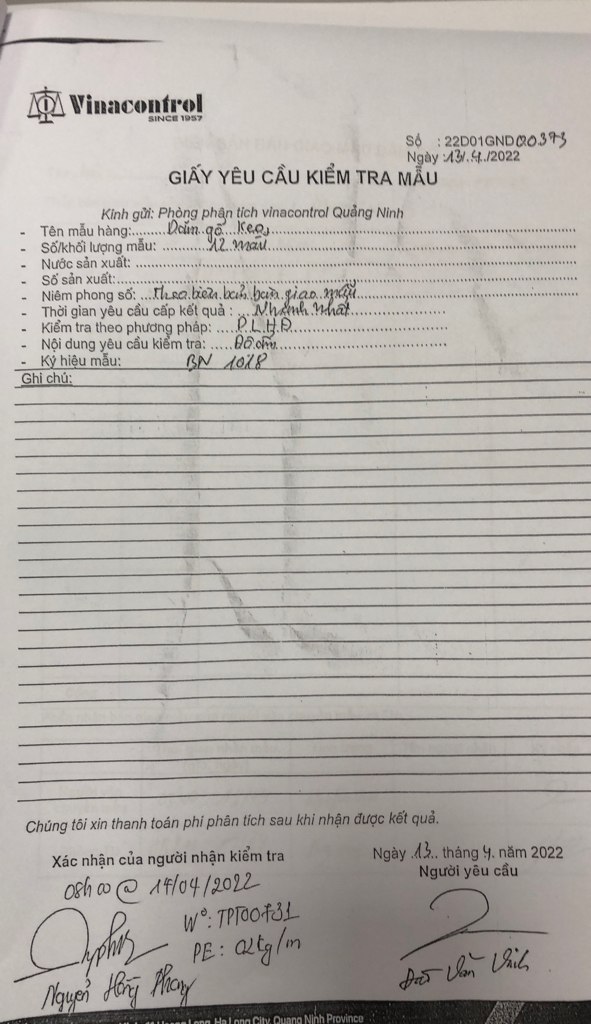 Vinacontrol
SINCE 1957
Số : 22D01GND00393
Ngày :13/.4./2022
GIẤY YÊU CẦU KIỂM TRA MẪU
Kính gửi: Phòng phân tích vinacontrol Quảng Ninh
- Tên mẫu hàng: Dăm gỗ Keo
- Số/khối lượng mẫu: 12 mẫu
- Nước sản xuất:
- Số sản xuất:
- Niêm phong số: Theo biên bản bàn giao mẫu
- Thời gian yêu cầu cấp kết quả : Nhanh nhất
- Kiểm tra theo phương pháp: P.L.H.Đ
- Nội dung yêu cầu kiểm tra: Độ ẩm
- Ký hiệu mẫu: BN 1018
Ghi chú:
Chúng tôi xin thanh toán phí phân tích sau khi nhận được kết quả.
Xác nhận của người nhận kiểm tra
08h00 @ 14/04/2022
Nº: TPT00731
PE: 02kg/m
Nguyễn Hồng Phong
Ngày .13.. tháng 4. năm 2022
Người yêu cầu
Văn Vinh
Long, Ha Long City, Quang Ninh Province